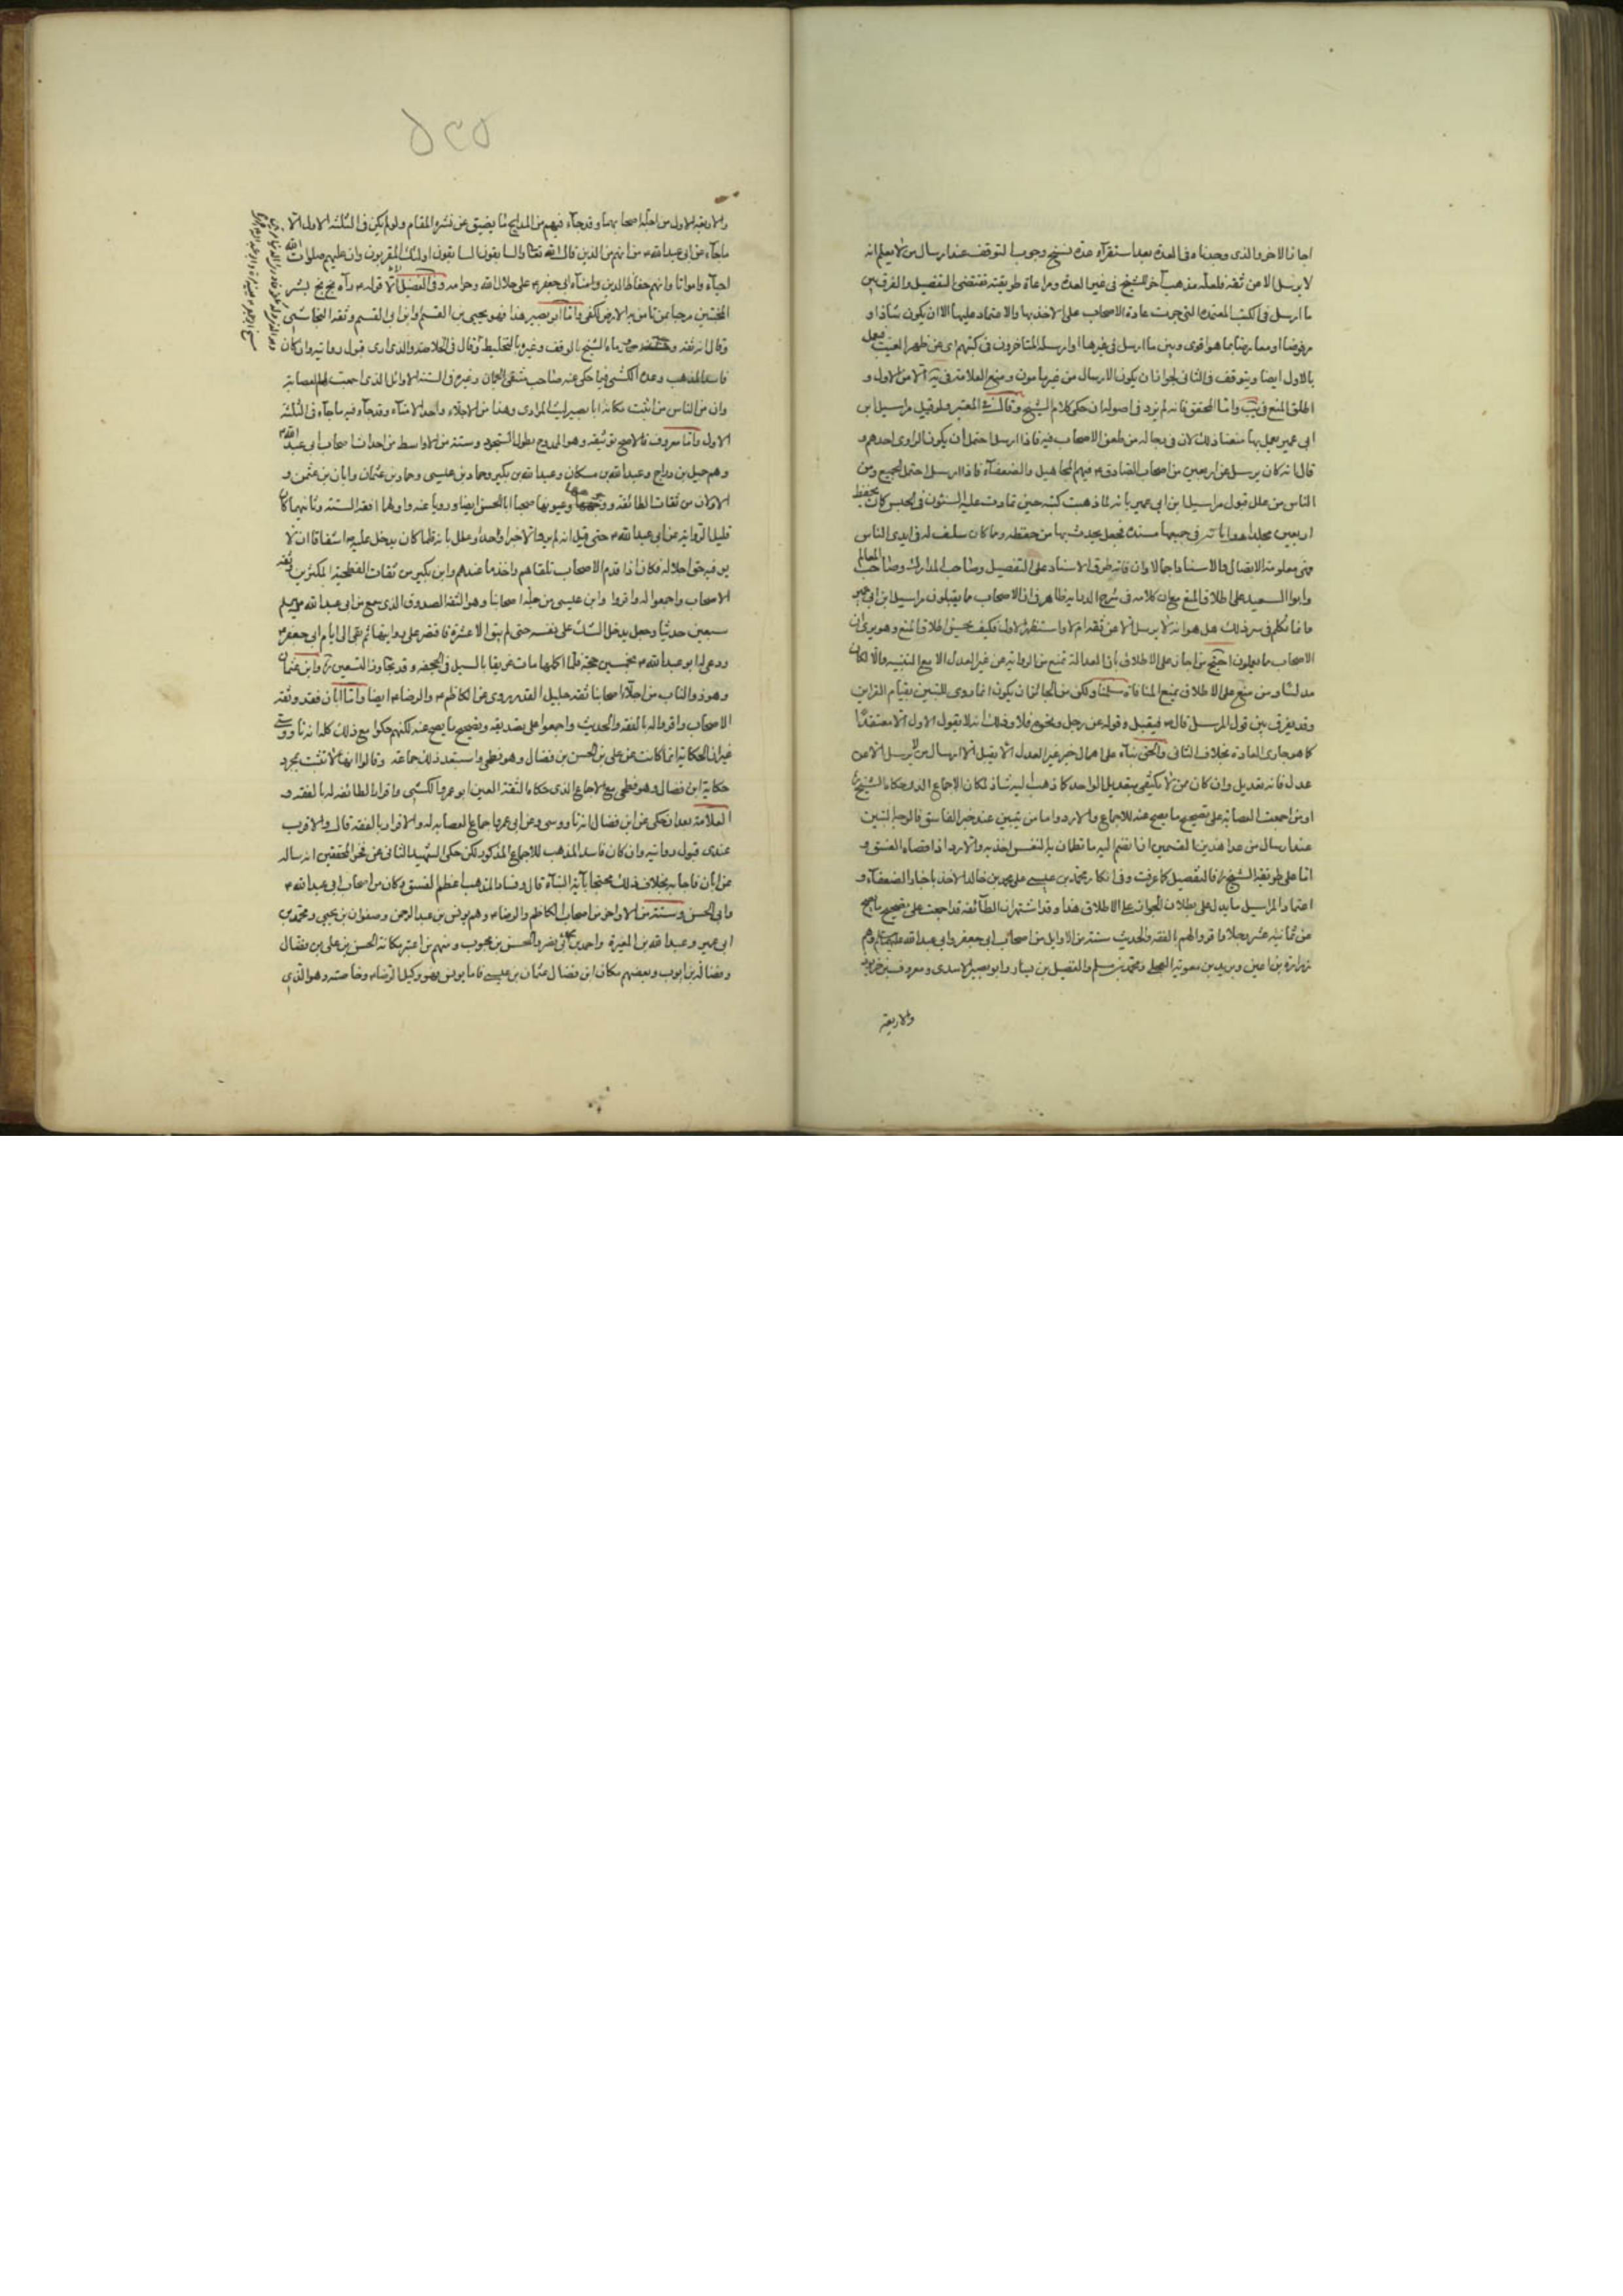 اجاز الاخر والذى وجدناه فى العدة بعد استقرآء عدة نسخ وجوب التوقف عند ارسال من لا يعلم انه
لا يرسل الا عن ثقة فلعله مذهب آخر للشيخ فى غير العدة ومراعاة طريقته تقتضى التفصيل والفرق بين
ما ارسل فى الكتب المعتمدة التى جرت عادة الاصحاب على الاخذ بها والاعتماد عليها الا ان يكون شاذا او
مرفوضا او معارضا بما هو اقوى وبين ما ارسل فى غيرها او ارسله المتاخرون فى كتبهم اى عن ظهر الغيب فيعمل
بالاول ايضا ويتوقف فى الثانى لجواز ان يكون الارسال من غير مامون ومنع العلامة فى يه الا من الاول و
اطلق المنع فى يب واما المحقق فانه لم يزد فى اصوله ان حكى كلام الشيخ وقال فى المعتبر ولو قيل مراسيل ابن
ابى عمير يعمل بها منعنا ذلك لان فى رجاله من طعن الاصحاب فيه فاذا ارسل احتمل ان يكون الراوى احدهم و
قال انه كان يرسل عن اربعين من اصحاب الصادق ع فيهم المجاهيل والضعفآء فاذا ارسل احتمل الجميع ومن
الناس من علل قبول مراسيل ابن ابى عمير بانه لما ذهبت كتبه حين تمادت عليه السنون فى الحبس كان يحفظ
اربعين مجلدا فجعل يحدث بها من حفظه وما كان سلف له فى ايدى الناس
فهى معلومة الاتصال والاسناد اجمالا وان فاته طرق الاسناد على التفصيل وصاحب المدارك وصاحب المعالم
وابوا السعيد على اطلاق المنع مع ان كلامه فى شرح الدراية ظاهر فى ان الاصحاب ما يقبلون مراسيل ابن ابى عمير
الاصحاب ما يعملون احتج من اجاز على الاطلاق بان العدالة تمنع من الرواية عن غير العدل الا مع التنبيه والا لكان
مدلسا ومن منع على الاطلاق بمنع المنافاة سلمنا ولكن من الجائز ان يكون انما روى للتبين بقيام القراين
وقد يفرق بين قول المرسل قال ع فيقبل وقوله عن رجل ونحوه فلا وذلك انه لا يقول الاول الا معتقدا
كما هو جارى العادة بخلاف الثانى والحق بناء على اهمال خبر غير العدل الا يقبل الا ارسال من لا يرسل الا عن
عدل فانه تعديل وان كان ممن لا يكتفى بتعديل الواحد كما ذهب اليه شاذ لمكان الاجماع الذى حكاه الشيخ
او من اجمعت العصابة على تصحيح ما يصح عنه للاجماع والا ردوا ما من يتبين عند خبر الفاسق فالوجه التبين
عند ارسال من عدا هذين القسمين اذا انضم اليه ما تطمان به النفس اخذ به والا رد اذ قصاه الفسق و
اما على طريقة الشيخ ره فالتفصيل كما عرفت وفى انكار محمد بن عيسى على محمد بن خالد الاخذ باخبار الضعفآء و
اعتماد المراسيل ما يدل على بطلان الجواز على الاطلاق هذا وقد اشتهر ان الطائفة قد اجمعت على تصحيح ما يصح
عن ثمانية عشر رجلا واقروا لهم بالفقه والحديث ستة من الاوايل من اصحاب ابى جعفر وابى عبد الله عليهما السلم وهم
زرارة بن اعين وبريد بن معوية العجلى ومحمد بن مسلم والفضيل بن يسار وابو بصير الاسدى ومعروف بن خربوذ
والاربعة
٥٢٥
والاربعة الاول من اجلة اصحابهما وقد جآء فيهم من المدايح ما يضيق عن نشره المقام ولو لم يكن فى الثلثة الاول الا
ما جآء عن ابى عبد الله ع من انهم من الذين قال الله تعالى والسابقون السابقون اولئك المقربون وان عليهم صلوات الله
احيآء وامواتا وانهم حفاظ الدين وامنآء ابى جعفر ع على حلال الله وحرامه وفى الفضيل الا قوله ع رآه بخ بخ بشر
المخبتين مرحبا بمن تانس به الارض لكفى واما ابو بصير هذا فهو يحيى بن القسم او ابن ابى القسم وثقه النجاشى
وقال انه ثقة ورماه الشيخ بالوقف وغيره بالتخليط وقال فى الخلاصة والذى ارى قبول روايته وان كان
فاسد المذهب وعده الكشى فيما حكى عنه صاحب منتقى الجمان وغيره فى الستة الاوائل الذى اجمعت لهم العصابة
وان من الناس من اثبت مكانه ابا بصير ليث المرادى وهذا من الاجلاء واحد الامنآء وقد جآء فيه ما جآء فى الثلثة
الاول واما معروف فالاصح توثيقه وهو الممدوح بطول السجود وستة من الاواسط من احداث اصحاب ابى عبد الله ع
وهم جميل بن دراج وعبد الله بن مسكان وعبد الله بن بكير وحماد بن عيسى وحماد بن عثمان وابان بن عثمن و
الاولان من ثقات الطائفة ووجهها وعيونها صحبا ابا الحسن ايضا ورويا عنه واولهما افقه الستة وثانيهما كان
قليل الرواية عن ابى عبد الله ع حتى قيل انه لم يرو الا خبرا واحدا وعلل بانه قلما كان يدخل عليه اشفاقا ان لا
يوفيه حق اجلاله فكان اذا قدم الاصحاب تلقاهم واخذ ما عندهم وابن بكير من ثقات الفطحية المكثرين وثقه
الاصحاب واجمعوا له واقروا وابن عيسى من جلة اصحابنا وهو الثقة الصدوق الذى سمع من ابى عبد الله ع
سبعين حديثا وجعل يدخل الشك على نفسه حتى لم يبق الا عشرة فاقتصر على روايتها ثم بقى الى ايام ابى جعفر ع
ودعى له ابو عبد الله ع بخمسين حجة فلما اكملها مات غريقا بالسيل فى الجحفة وقد تجاوز التسعين وابن عثمان
وهو ذو الناب من اجلاء اصحابنا ثقة جليل القدر يروى عن الكاظم ع والرضا ع ايضا واما ابان فقد وثقه
الاصحاب واقروا له بالفقه والحديث واجمعوا على تصديقه وتصحيح ما يصح عنه لكنهم حكوا مع ذلك كله انه ناووسى
غير ان الحكاية انما كانت عن على بن الحسن بن فضال وهو فطحى واستبعد ذلك جماعة وقالوا انها لا تثبت بمجرد
حكاية ابن فضال وهو فطحى مع الاجماع الذى حكاه الثقة العين ابو عمرو الكشى واقرار الطائفة له بالفقه و
العلامة بعد ان حكى عن ابن فضال انه ناووسى وعن ابى عمرو اجماع العصابة له والاقرار بالفقه قال والاقرب
عندى قبول روايته وان كان فاسد المذهب للاجماع المذكور لكن حكى الشهيد الثانى عن فخر المحققين انه ساله
عن ابان فاجابه بخلاف ذلك محتجا بآية النبآء قال وفساد المذهب اعظم الفسق وكان من اصحاب ابى عبد الله ع
وابى الحسن وستة من الاواخر من اصحاب الكاظم والرضا ع وهم يونس بن عبد الرحمن وصفوان بن يحيى ومحمد بن
ابى عمير وعبد الله بن المغيرة واحمد بن ابى نصر والحسن بن محبوب ومنهم من اعتبر مكانه الحسن بن على بن فضال
وفضالة بن ايوب وبعضهم مكان ابن فضال عثمان بن عيسى فاما يونس فهو وكيل الرضا ع وخاصته وهو الذى